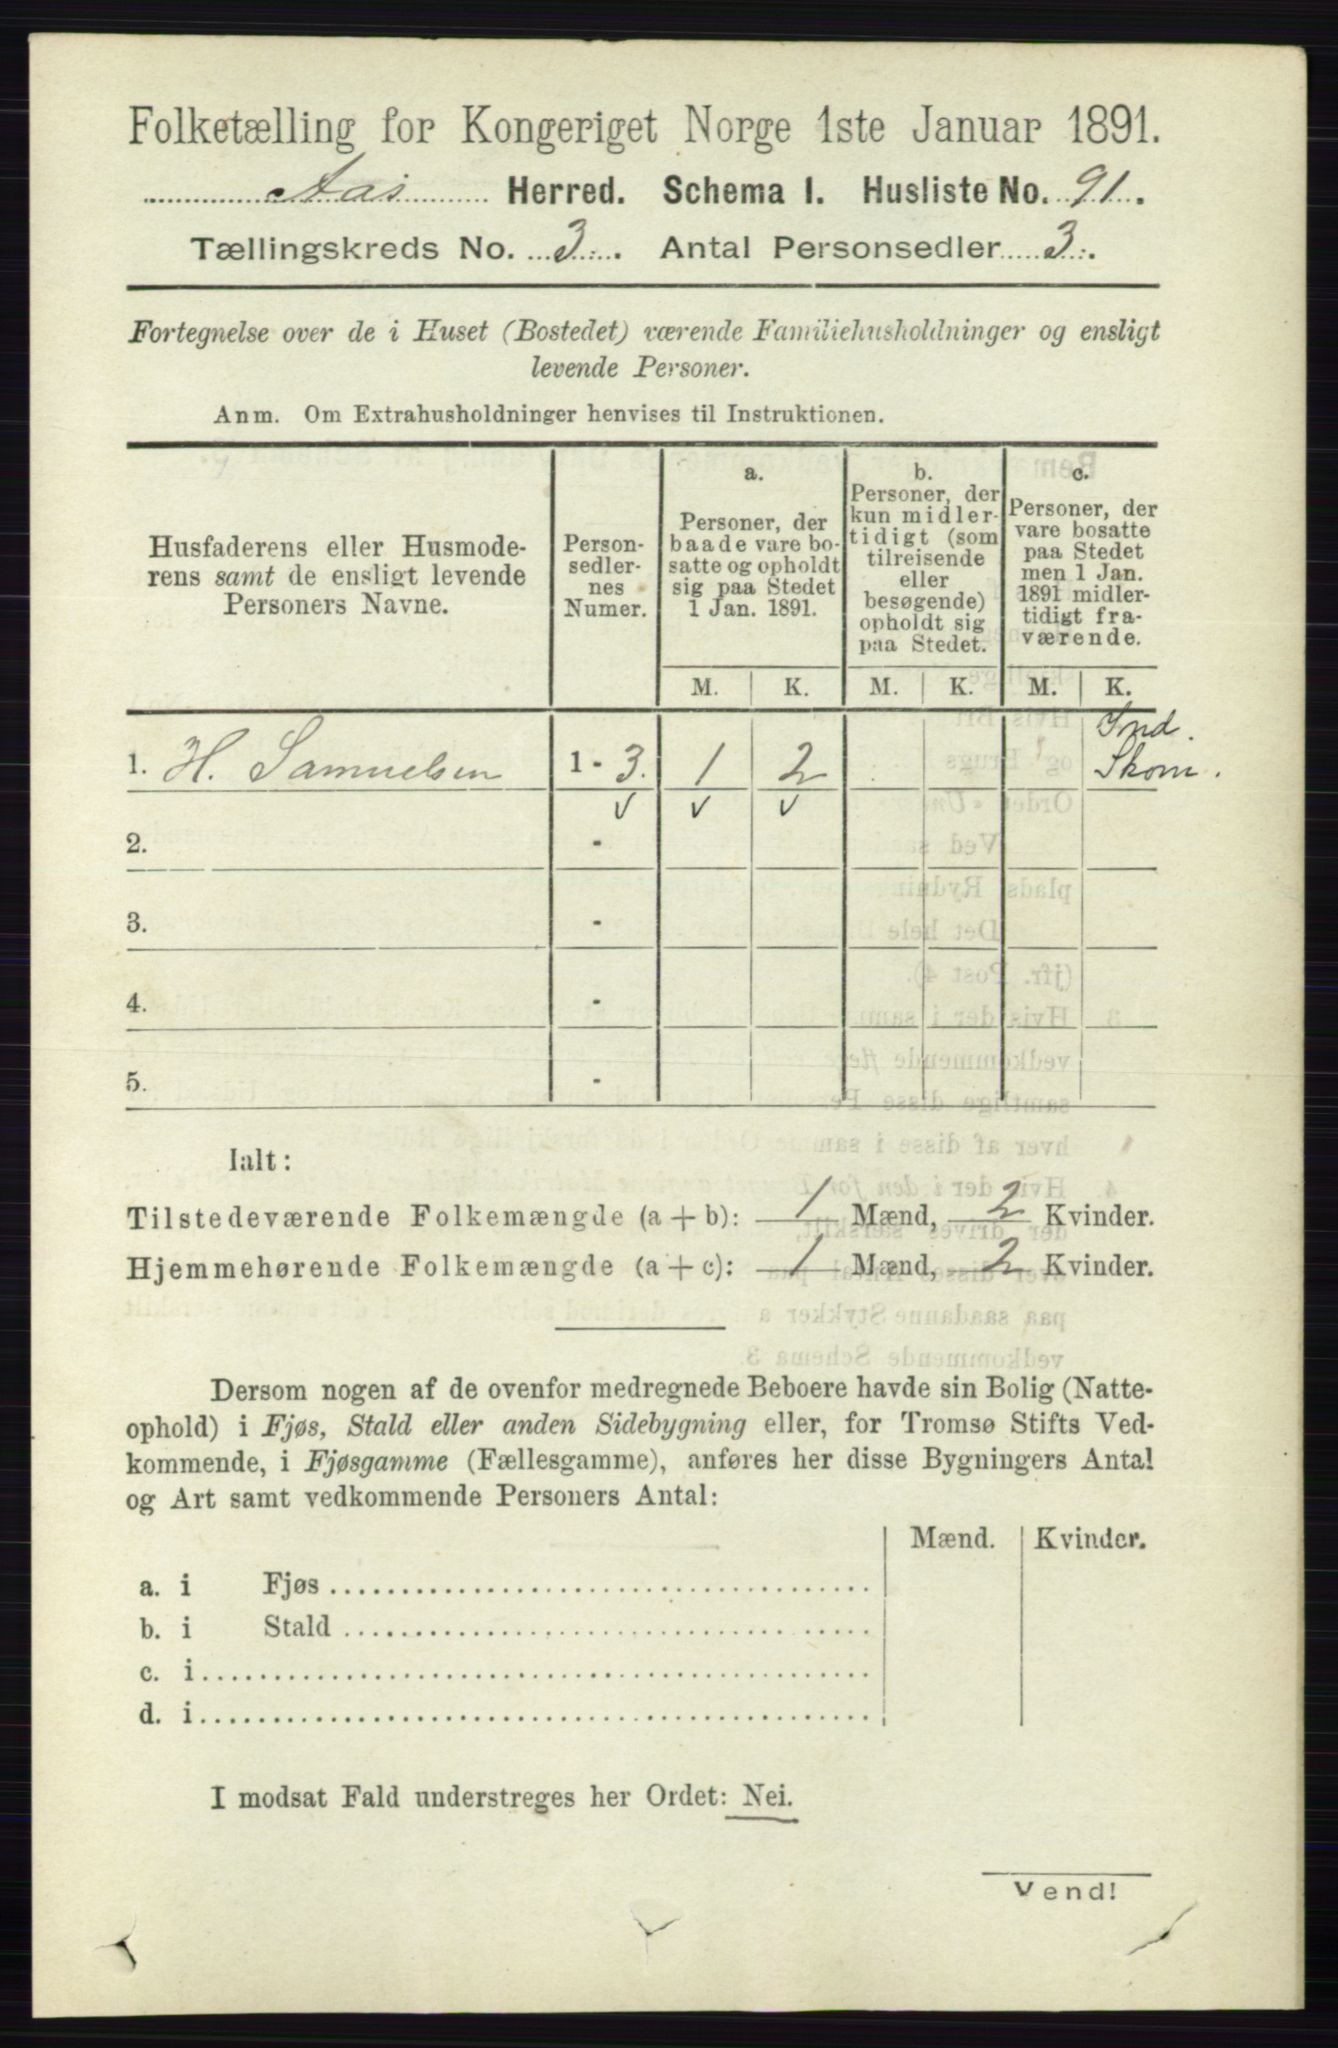 Folketælling for Kongeriget Norge 1ste Januar 1891.
Aas Herred. Schema 1. Husliste No. 91.
Tællingskreds No. 3. Antal Personsedler 3.
Fortegnelse over de i Huset (Bostedet) værende Familiehusholdninger og ensligt
levende Personer.
Anm. Om Extrahusholdninger henvises til Instruktionen.
Husfaderens eller Husmode-
rens samt de ensligt levende
Personers Navne.
Person-
sedler-
nes
Numer.
a.
Personer, der
baade vare bo-
satte og opholdt
sig paa Stedet
1 Jan. 1891.
b.
Personer, der
kun midler-
tidigt (som
tilreisende
eller
besøgende)
opholdt sig
paa Stedet.
c.
Personer, der
vare bosatte
paa Stedet
men 1 Jan.
1891 midler-
tidigt fra-
værende.
M. K. M. K. M. K.
Ind.
1. H. Samuelsen 1 - 3. 1 2 Skom.
v v v
2. -
3. -
4. -
5. -
Ialt:
Tilstedeværende Folkemængde (a + b): 1 Mænd, 2 Kvinder.
Hjemmehørende Folkemængde (a + c): 1 Mænd, 2 Kvinder.
Dersom nogen af de ovenfor medregnede Beboere havde sin Bolig (Natte-
ophold) i Fjøs, Stald eller anden Sidebygning eller, for Tromsø Stifts Ved-
kommende, i Fjøsgamme (Fællesgamme), anføres her disse Bygningers Antal
og Art samt vedkommende Personers Antal:
Mænd. Kvinder.
a. i Fjøs
b. i Stald
c. i
d. i
I modsat Fald understreges her Ordet: Nei.
Vend!